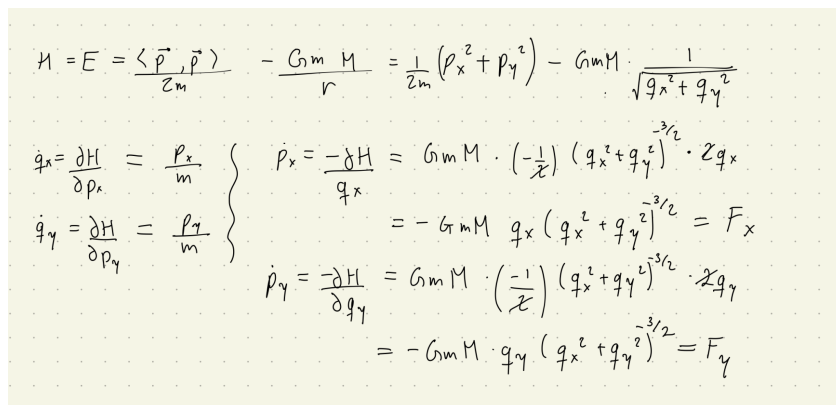 H = E = <p⃗, p⃗>/2m - GmM/r = 1/2m (pₓ² + p_y²) - GmM · 1/√(qₓ² + q_y²)
q̇ₓ = ∂H/∂pₓ = pₓ/m } ṗₓ = -∂H/qₓ = GmM · (-1/2) (qₓ² + q_y²)^(-3/2) · 2qₓ
= - GmM qₓ (qₓ² + q_y²)^(-3/2) = Fₓ
q̇_y = ∂H/∂p_y = p_y/m
ṗ_y = -∂H/∂q_y = GmM · (-1/2) (qₓ² + q_y²)^(-3/2) · 2q_y
= - GmM · q_y (qₓ² + q_y²)^(-3/2) = F_y